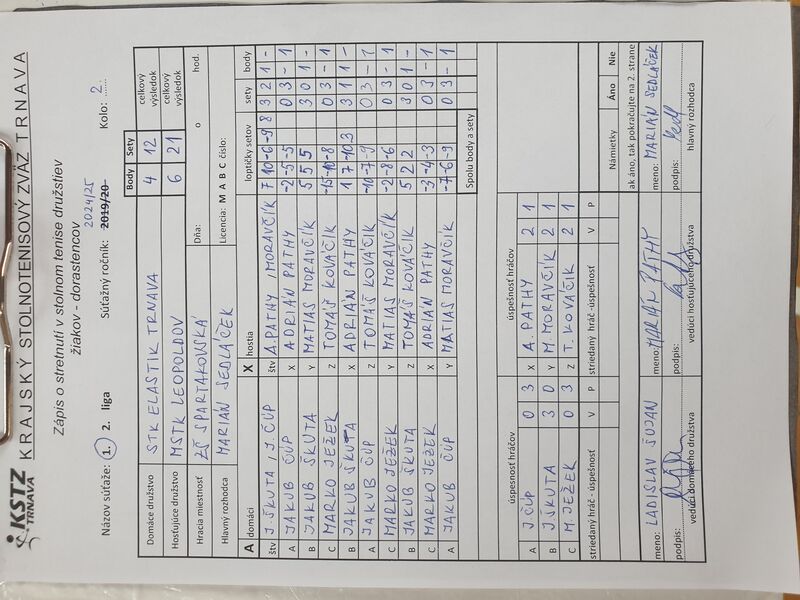 KSTZ
TRNAVA
KRAJSKÝ STOLNOTENISOVÝ ZVÄZ TRNAVA
Zápis o stretnutí v stolnom tenise družstiev
žiakov - dorastencov
2024/25
Názov súťaže: 1. 2. liga Súťažný ročník: 2019/20 Kolo: 2.
Body Sety
Domáce družstvo STK ELASTIK TRNAVA 4 12 celkový výsledok
Hosťujúce družstvo MSTK LEOPOLDOV 6 21 celkový výsledok
Hracia miestnosť ZŠ SPARTAKOVSKÁ Dňa: o hod.
Hlavný rozhodca MARIAN SEDLAČEK Licencia: M A B C číslo:
A domáci X hostia loptičky setov sety body
štv J. ŠKUTA, J. ČÚP štv A. PATHY, MORAVČÍK 7 10 -6 -9 8 3 2 1 -
A JAKUB ČÚP X ADRIÁN PATHY -2 -5 -5 0 3 - 1
B JAKUB ŠKUTA Y MATIAS MORAVČÍK 5 5 5 3 0 1 -
C MARKO JEŽEK Z TOMAŠ KOVÁČIK -15 -10 -8 0 3 - 1
B JAKUB ŠKUTA X ADRIÁN PATHY 1 7 -10 3 3 1 1 -
A JAKUB ČÚP Z TOMAŠ KOVÁČIK -10 -7 -9 0 3 - 1
C MARKO JEŽEK Y MATIAS MORAVČÍK -2 -8 -6 0 3 - 1
B JAKUB ŠKUTA Z TOMAŠ KOVÁČIK 5 2 2 3 0 1 -
C MARKO JEŽEK X ADRIAN PATHY -3 -4 -3 0 3 - 1
A JAKUB ČÚP Y MATIAS MORAVČÍK -7 -6 -9 0 3 - 1
Spolu body a sety
úspesnosť hráčov úspešnosť hráčov
A J ČÚP 0 3 X A. PATHY 2 1
B J ŠKUTA 3 0 Y M. MORAVČÍK 2 1
C M. JEŽEK 0 3 Z T. KOVÁČIK 2 1
striedaný hráč - úspešnosť V P striedaný hráč-úspešnosť V P
Námietky Áno Nie
ak áno, tak pokračujte na 2. strane
meno: LADISLAV ŠUJAN meno: MARIÁN PATHY meno: MARIÁN SEDLAČEK
podpis: podpis: podpis:
vedúci domáceho družstva vedúci hosťujúceho družstva hlavný rozhodca